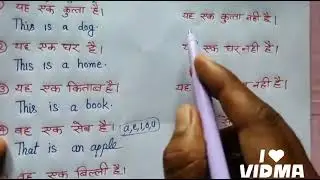 ① यह एक कुत्ता है।
This is a dog.
यह एक कुत्ता नहीं है।
② यह एक घर है।
This is a home.
एक घर नही है।
③ यह एक किताब है।
This is a book.
नहीं है।
④ वह एक सेब है। (a,e,i,o,u)
That is an apple
वह एक बिल्ली है।
I ❤
VIDMA